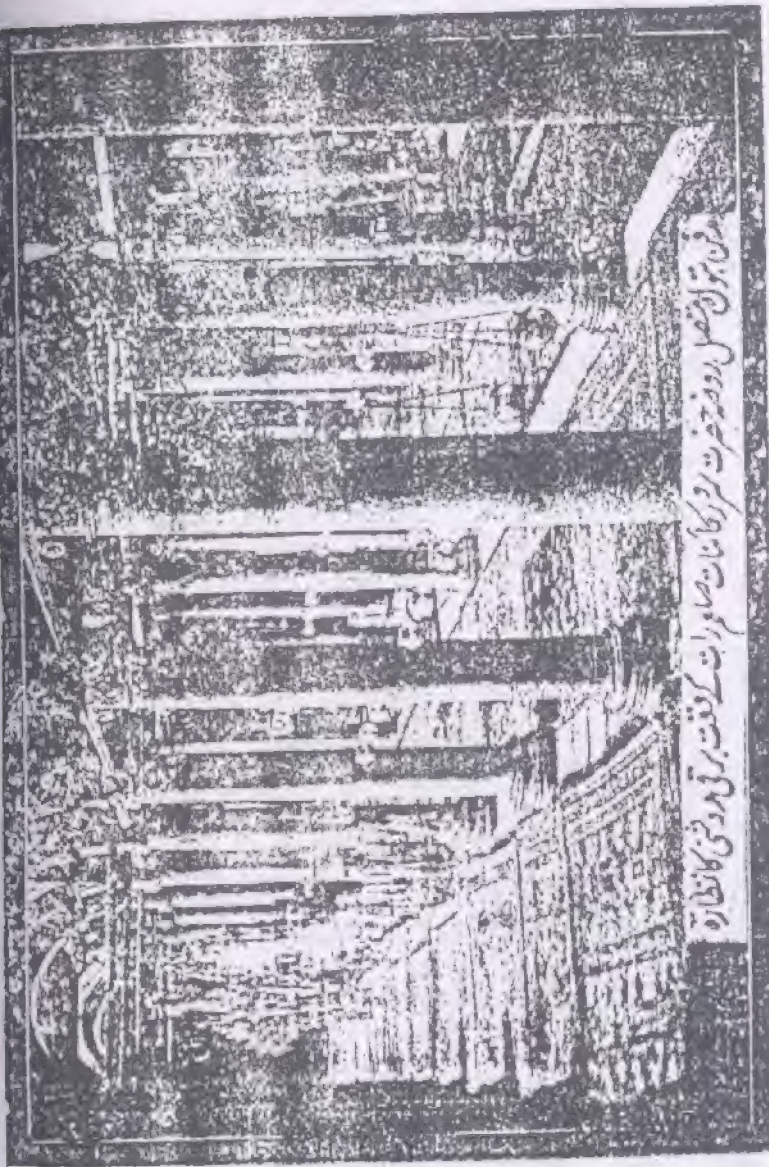 مسجد نبوی کا متصل روضہ حضرت سرور کائنات صلعم رات کے وقت برقی روشنی کا نظارہ